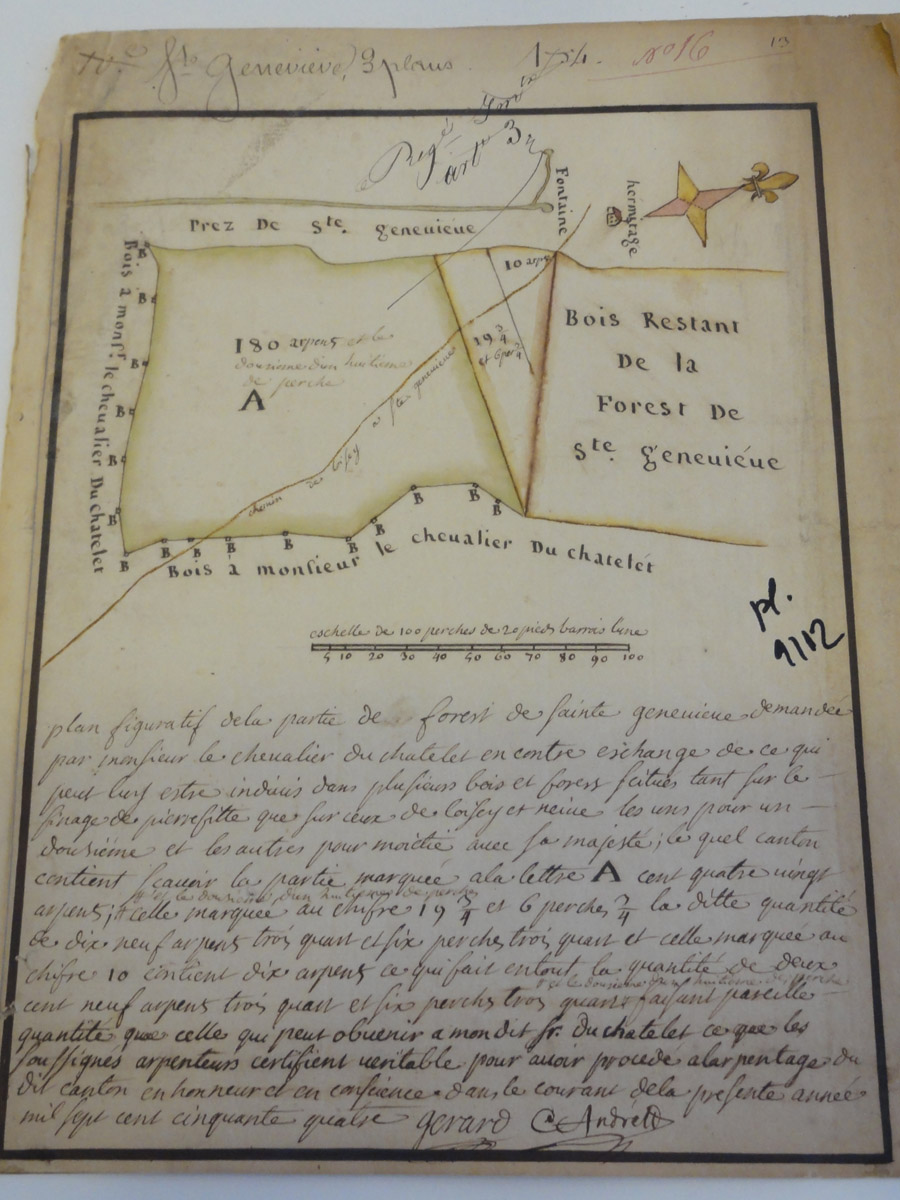 Ste Genevieve, 3 plans. 1754. no 16
13
art. 3
Prez De Ste. geneuieue
Fontaine
hermitage
Bois à monsr. le cheualier Du chatelet
180 arpens et le
dousieme d'un huitieme
de perche
A
10 arpens
19 3/4
et 6 per 3/4
chemin de loisey a ste geneuieue
Bois Restant
De la
Forest De
Ste geneuiéue
B B B B B B B B B B B B B B B B
Bois à monsieur le cheualier Du chatelét
pl.
9112
eschelle de 100 perches de 20 pieds barrois lune
5 10 20 30 40 50 60 70 80 90 100
plan figuratif dela partie de forest de sainte genevieue demandée
par monsieur le cheualier du chatelet en contre eschange de ce qui
peut luy estre indiuis dans plusieurs bois et forest scitués tant sur le
finage de pierrefitte que sur ceux de loisey et neiue les uns pour un
dousiéme et les autres pour moictié auec sa majesté; le quel canton
contient scauoir la partie marquée ala lettre A cent quatre uingt
# et le dousieme d'un huitieme de perches
arpens; # celle marquée au chifre 19 3/4 et 6 perches 3/4 la ditte quantité
de dix neuf arpens trois quart et six perches trois quart et celle marquée au
chifre 10 contient dix arpens ce qui fait entout la quantité de deux
# et le dousieme d'un huitieme de perche
cent neuf arpens trois quart et six perchs trois quart # faisant pareille
quantité que celle qui peut obuenir a mon dit sr. du chatelet ce que les
soussignés arpenteurs certifient ueritable pour auoir procede alarpentage du
dit canton en honneur et en consience dans le courant dela presente année
mil sept cent cinquante quatre gerard C Andrett